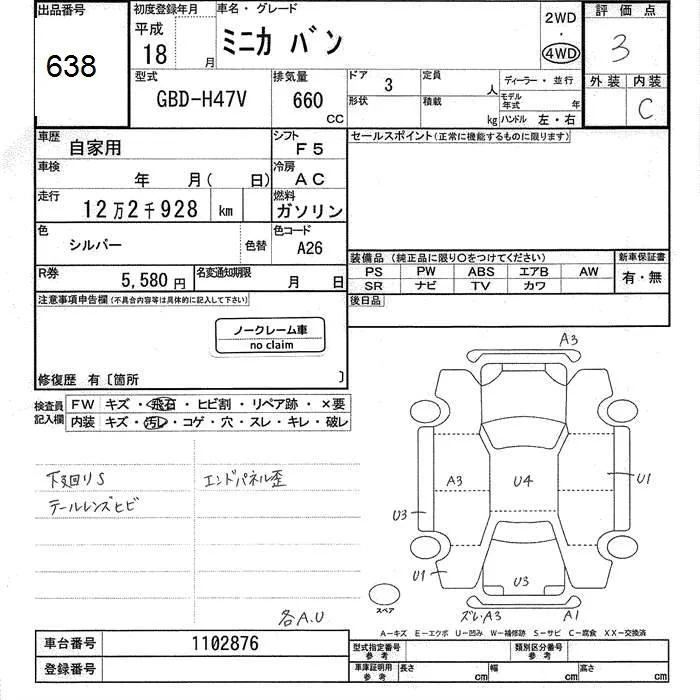 出品番号
638
初度登録年月
平成
18 月
車名・グレード
ミニカ バン
2WD
・
4WD
評価点
3
外装 内装
C
型式
GBD-H47V
排気量
660
CC
ドア
3
定員
人
形状
積載
kg
ディーラー・並行
モデル年式 年
ハンドル 左・右
車歴
自家用
シフト
F5
車検
年 月( 日)
冷房
AC
走行
12万2千928 km
燃料
ガソリン
色
シルバー
色替
色コード
A26
R券
5,580 円
名変通知期限
月 日
セールスポイント(正常に機能するものに限ります)
装備品(純正品に限り○をつけてください)
PS PW ABS エアB AW
SR ナビ TV カワ
新車保証書
有・無
後日品
注意事項申告欄(不具合内容等は具体的に記入して下さい)
ノークレーム車
no claim
修復歴 有〔箇所 〕
検査員記入欄
FW キズ・飛石・ヒビ割・リペア跡・×要
内装 キズ・汚レ・コゲ・穴・スレ・キレ・破レ
下廻りS
エンドパネル歪
テールレンズヒビ
各A.U
A3
A3
U4
U1
U3
U1
U3
スペア
ズレA3
A1
A-キズ E-エクボ U-凹み W-補修跡 S-サビ C-腐食 XX-交換済
車台番号
1102876
登録番号
型式指定番号
参考
類別区分番号
参考
車庫証明用
参考
長さ cm
幅 cm
高さ cm